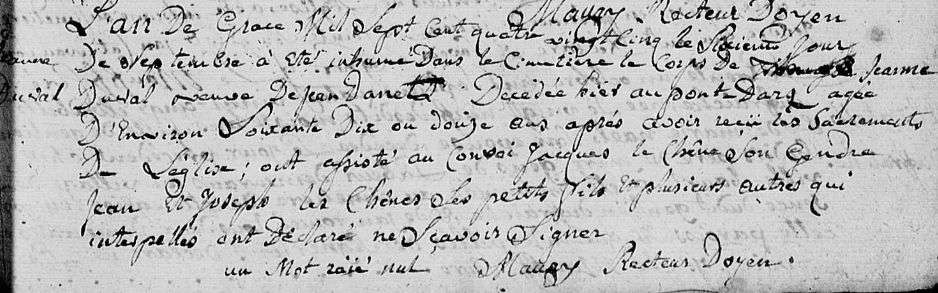 Maugy Recteur Doyen
L'an De Grace Mil Sept Cent quatre vingt Cinq le Sixieme Jour
De Septembre à Eté inhumé Dans le Cimetiere le Corps de Jeanne
Duval Duval veuve De jean Danet Decedée hier au pont Darz agée
D'Environ Soixante Dix ou douze ans aprés avoir reçu les Sacrements
De L'eglise; ont assisté au Convoi Jacques le Chêne Son Gendre
Jean Et Joseph les Chênes Ses petits fils Et plusieurs autres qui
interpellés ont Declaré ne Sçavoir Signer
un Mot raïé nul Maugy Recteur Doyen.